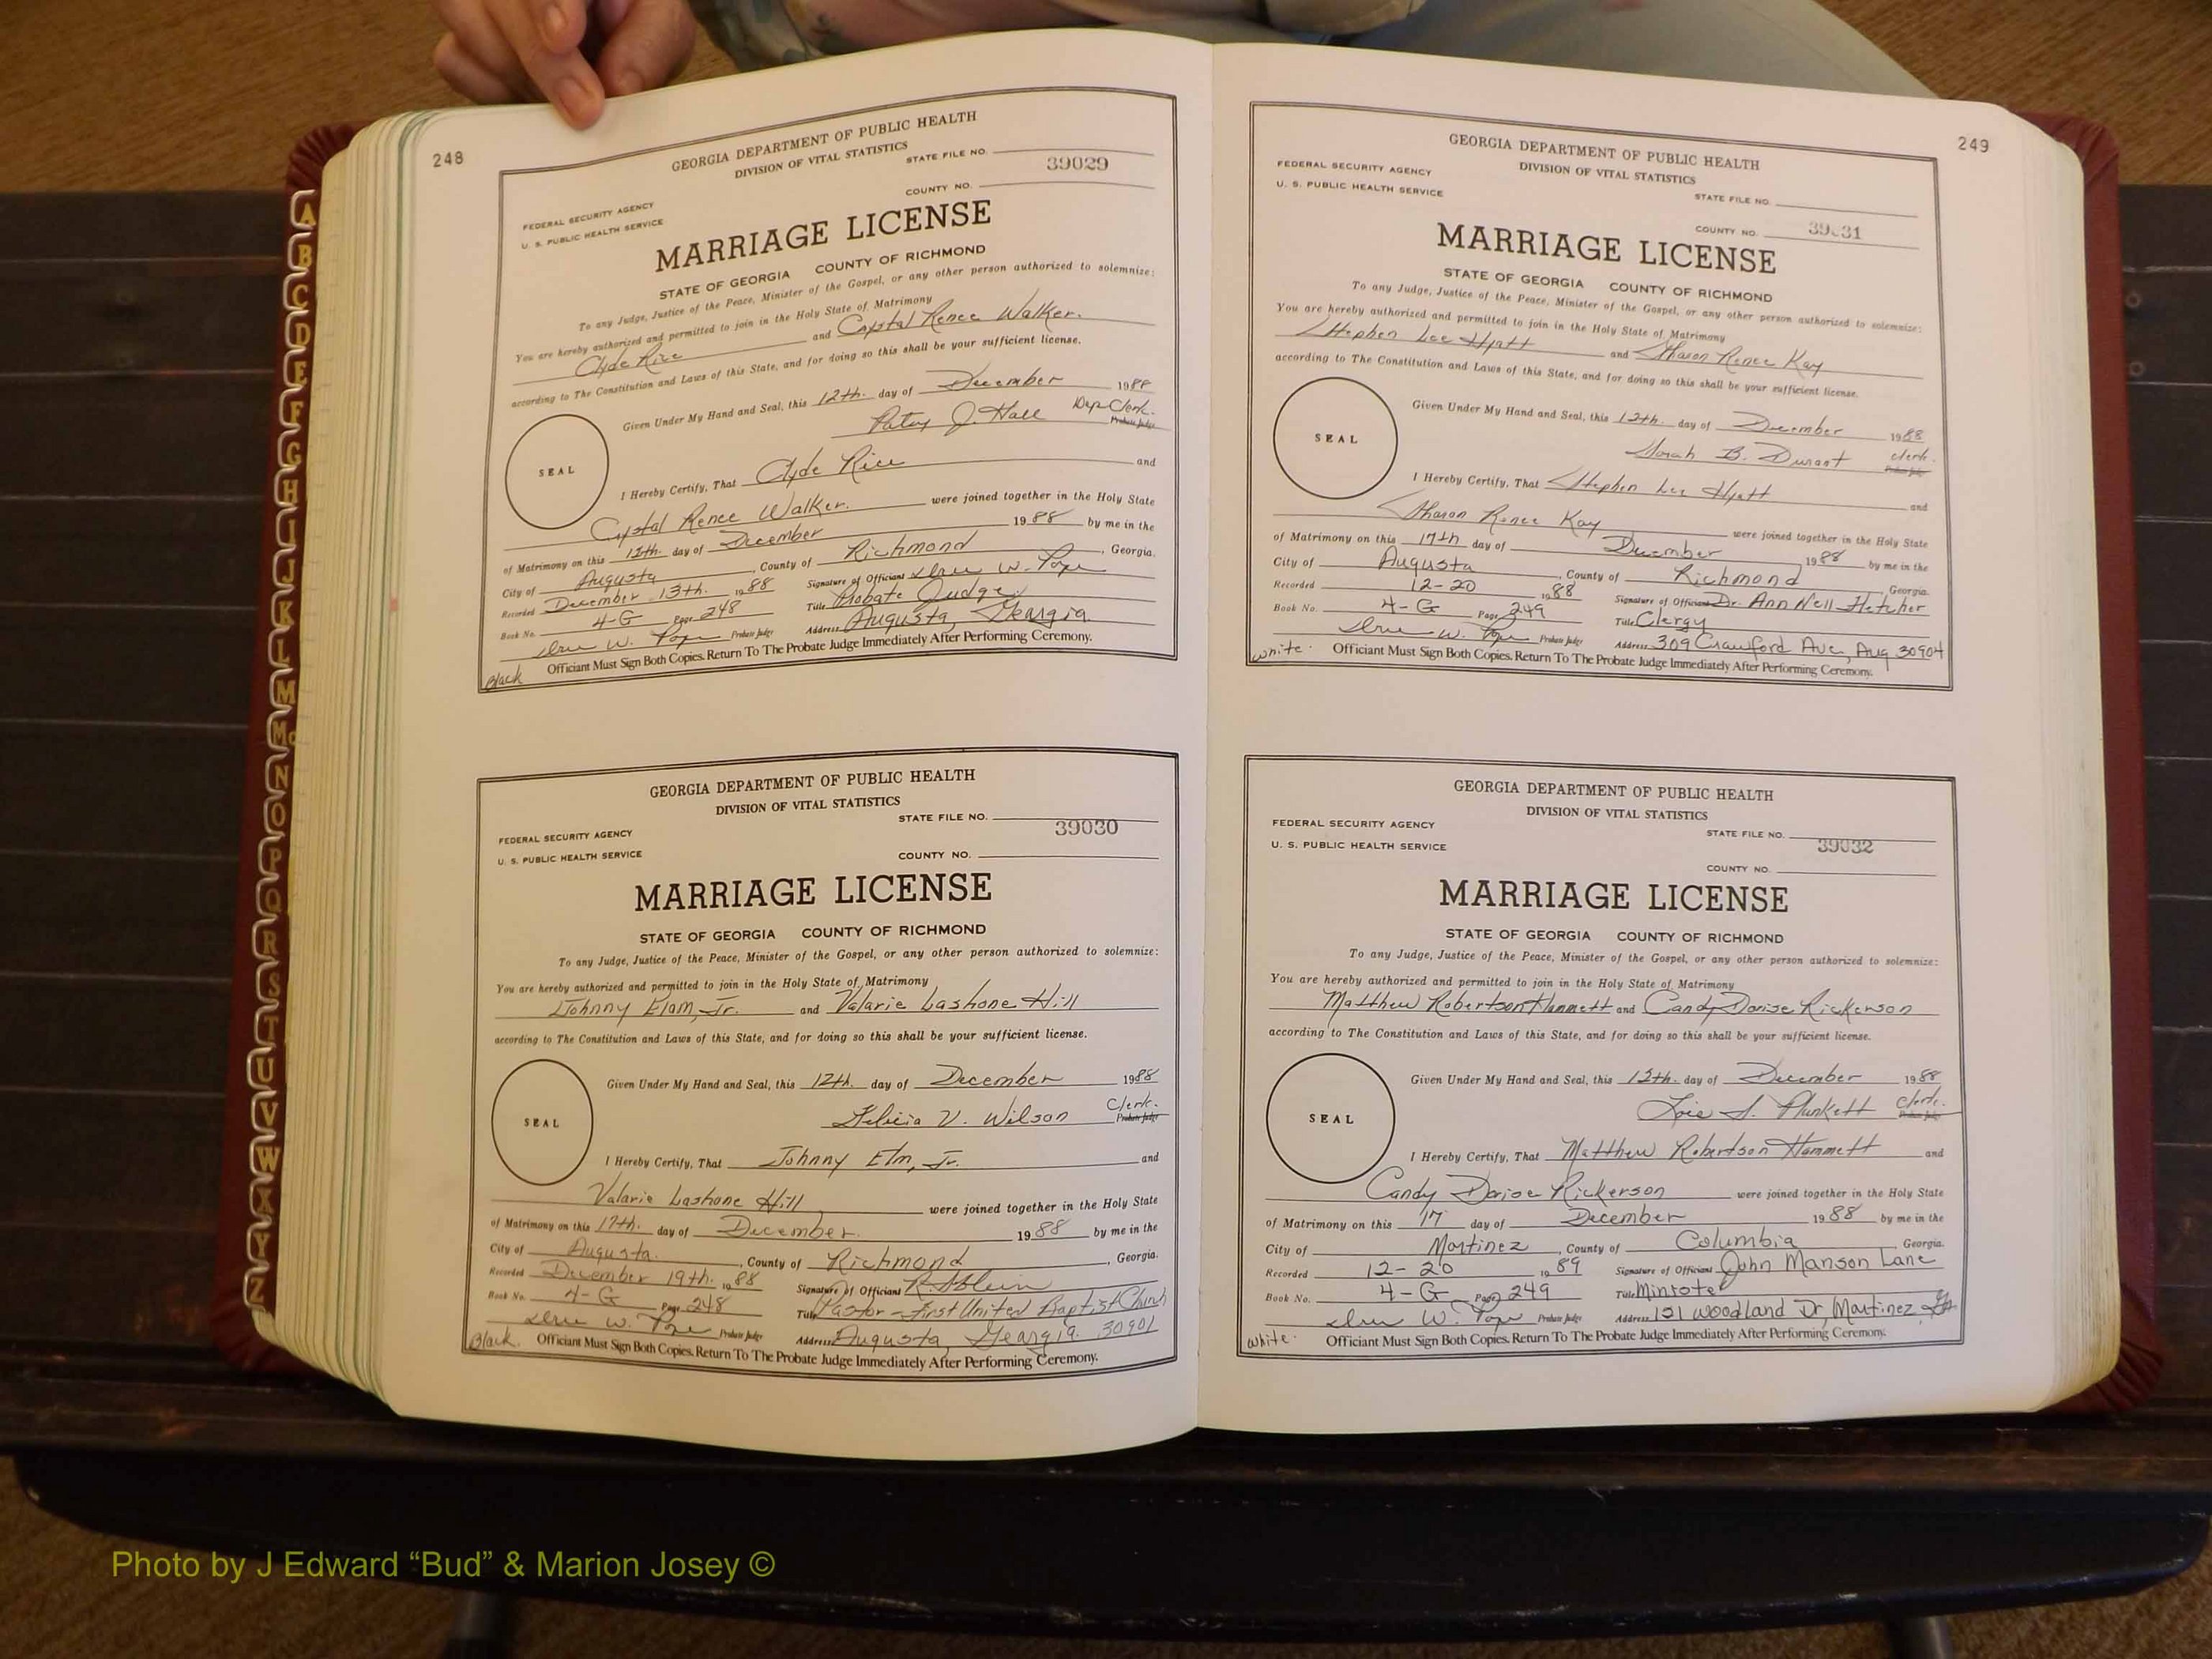 248
GEORGIA DEPARTMENT OF PUBLIC HEALTH
DIVISION OF VITAL STATISTICS
STATE FILE NO. 39029
COUNTY NO.
FEDERAL SECURITY AGENCY
U. S. PUBLIC HEALTH SERVICE
MARRIAGE LICENSE
STATE OF GEORGIA COUNTY OF RICHMOND
To any Judge, Justice of the Peace, Minister of the Gospel, or any other person authorized to solemnize:
You are hereby authorized and permitted to join in the Holy State of Matrimony
Clyde Rice and Crystal Renee Walker.
according to The Constitution and Laws of this State, and for doing so this shall be your sufficient license.
Given Under My Hand and Seal, this 12th. day of December 1988
Patsy J. Hall Dep Clerk.
Probate Judge
SEAL
I Hereby Certify, That Clyde Rice and
Crystal Renee Walker. were joined together in the Holy State
of Matrimony on this 12th. day of December 1988 by me in the
City of Augusta, County of Richmond, Georgia.
Recorded December 13th. 1988 Signature of Officiant W. Pope
Book No. 4-G Page 248 Title Probate Judge
W. Pope Probate Judge Address Augusta, Georgia.
Black Officiant Must Sign Both Copies. Return To The Probate Judge Immediately After Performing Ceremony.
GEORGIA DEPARTMENT OF PUBLIC HEALTH
DIVISION OF VITAL STATISTICS
STATE FILE NO. 39030
FEDERAL SECURITY AGENCY
U. S. PUBLIC HEALTH SERVICE
COUNTY NO.
MARRIAGE LICENSE
STATE OF GEORGIA COUNTY OF RICHMOND
To any Judge, Justice of the Peace, Minister of the Gospel, or any other person authorized to solemnize:
You are hereby authorized and permitted to join in the Holy State of Matrimony
Johnny Elam, Jr. and Valarie Lashone Hill
according to The Constitution and Laws of this State, and for doing so this shall be your sufficient license.
Given Under My Hand and Seal, this 12th. day of December 1988
Felicia V. Wilson Clerk.
Probate Judge
SEAL
I Hereby Certify, That Johnny Elm, Jr. and
Valarie Lashone Hill were joined together in the Holy State
of Matrimony on this 17th. day of December. 1988 by me in the
City of Augusta., County of Richmond, Georgia.
Recorded December 19th. 1988 Signature of Officiant
Book No. 4-G Page 248 Title Pastor - First United Baptist Church
W. Pope Probate Judge Address Augusta, Georgia. 30901
Black. Officiant Must Sign Both Copies. Return To The Probate Judge Immediately After Performing Ceremony.
249
GEORGIA DEPARTMENT OF PUBLIC HEALTH
DIVISION OF VITAL STATISTICS
FEDERAL SECURITY AGENCY
U. S. PUBLIC HEALTH SERVICE
STATE FILE NO.
COUNTY NO. 39031
MARRIAGE LICENSE
STATE OF GEORGIA COUNTY OF RICHMOND
To any Judge, Justice of the Peace, Minister of the Gospel, or any other person authorized to solemnize:
You are hereby authorized and permitted to join in the Holy State of Matrimony
Stephen Lee Hyatt and Sharon Renee Kay
according to The Constitution and Laws of this State, and for doing so this shall be your sufficient license.
Given Under My Hand and Seal, this 12th. day of December 1988
Sarah B. Durant clerk.
Probate Judge
SEAL
I Hereby Certify, That Stephen Lee Hyatt and
Sharon Renee Kay were joined together in the Holy State
of Matrimony on this 17th day of December 1988 by me in the
City of Augusta, County of Richmond, Georgia.
Recorded 12-20 1988 Signature of Officiant Dr. Ann Nell Fletcher
Book No. 4-G Page 249 Title Clergy
W. Pope Probate Judge Address 309 Crawford Ave, Aug 30904
White. Officiant Must Sign Both Copies. Return To The Probate Judge Immediately After Performing Ceremony.
GEORGIA DEPARTMENT OF PUBLIC HEALTH
DIVISION OF VITAL STATISTICS
FEDERAL SECURITY AGENCY
U. S. PUBLIC HEALTH SERVICE
STATE FILE NO. 39032
COUNTY NO.
MARRIAGE LICENSE
STATE OF GEORGIA COUNTY OF RICHMOND
To any Judge, Justice of the Peace, Minister of the Gospel, or any other person authorized to solemnize:
You are hereby authorized and permitted to join in the Holy State of Matrimony
Matthew Robertson Hammett and Candy Dorise Rickerson
according to The Constitution and Laws of this State, and for doing so this shall be your sufficient license.
Given Under My Hand and Seal, this 12th. day of December 1988
Lois S. Plunkett Clerk.
Probate Judge
SEAL
I Hereby Certify, That Matthew Robertson Hammett and
Candy Dorise Rickerson were joined together in the Holy State
of Matrimony on this 17 day of December 1988 by me in the
City of Martinez, County of Columbia, Georgia.
Recorded 12-20 1989 Signature of Officiant John Manson Lane
Book No. 4-G Page 249 Title Minister
W. Pope Probate Judge Address 121 Woodland Dr, Martinez, Ga
White. Officiant Must Sign Both Copies. Return To The Probate Judge Immediately After Performing Ceremony.
A
B
C
D
E
F
G
H
I
J
K
L
M
Mc
N
O
P
Q
R
S
T
U
V
W
X
Y
Z
Photo by J Edward “Bud” & Marion Josey ©